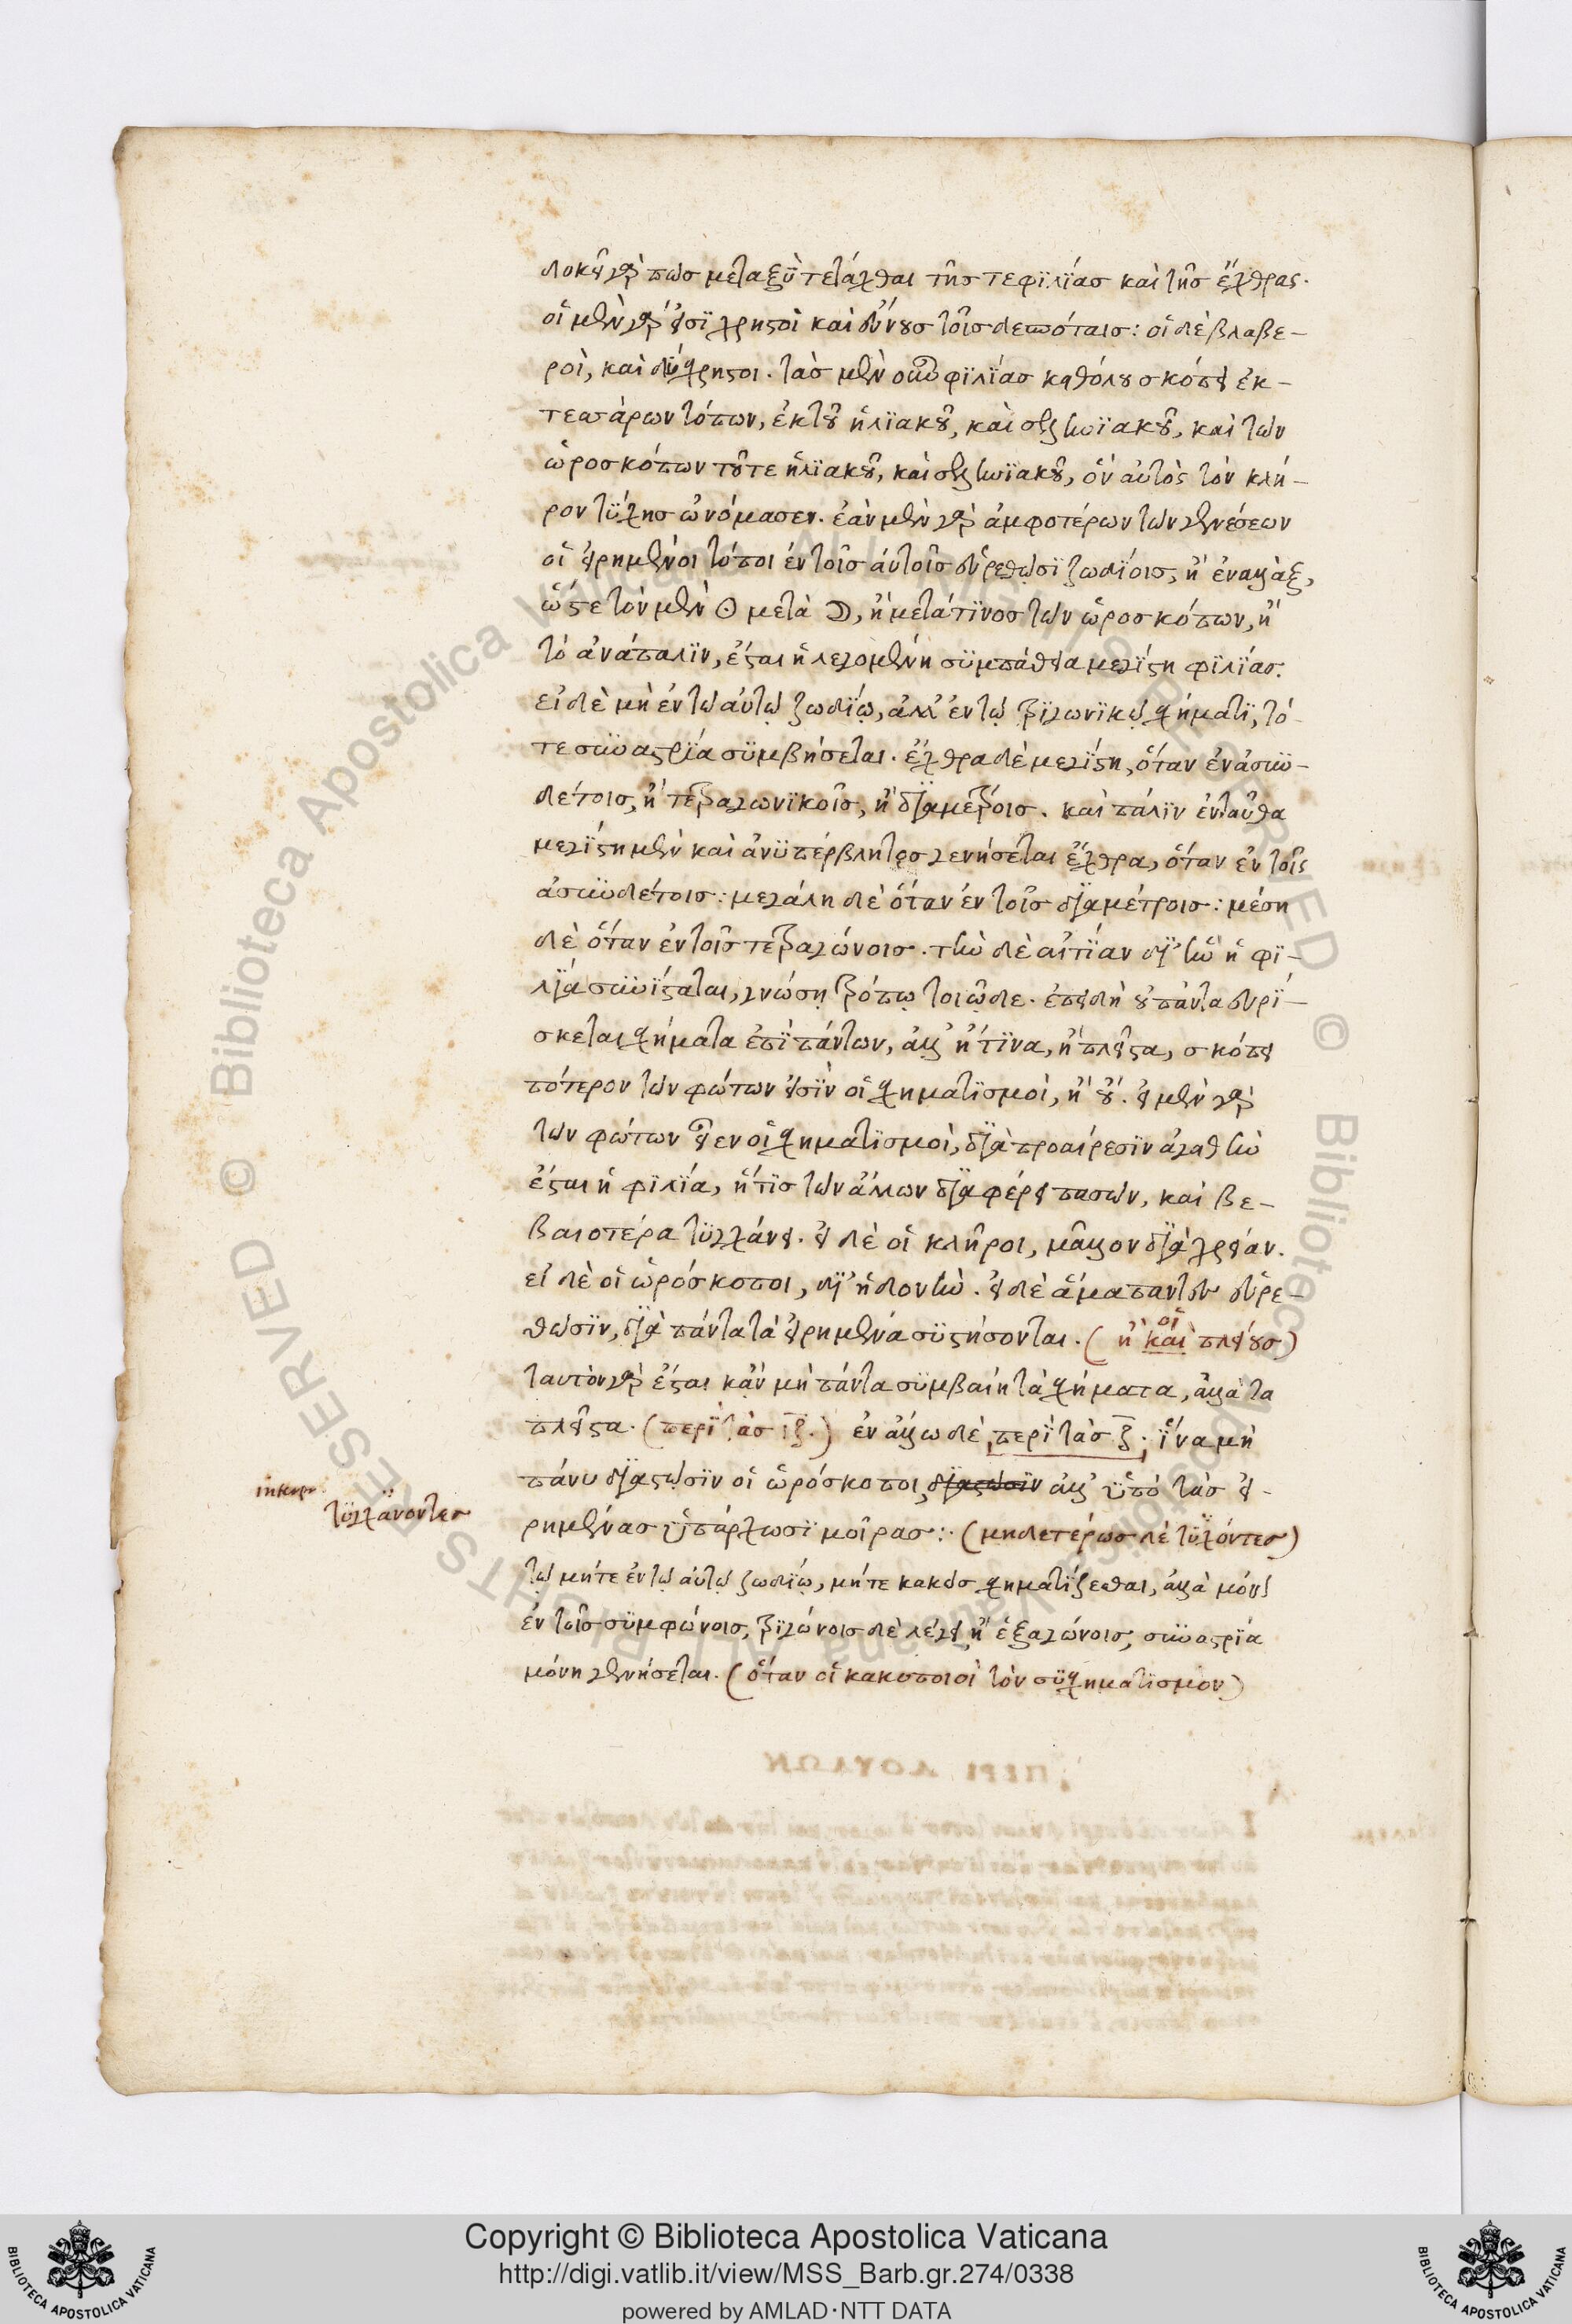 δοκεῖ γάρ πως μεταξὺ τετάχθαι τῆς τε φιλίας καὶ τῆς ἔχθρας.
οἱ μὲν γάρ εἰσι χρηστοὶ καὶ εὖνους τοῖς δεσπόταις: οἱ δὲ βλαβε-
ροὶ, καὶ δύσχρηστοι. τὰς μὲν οὖν φιλίας καθόλου σκόπει ἐκ
τεσσάρων τόπων, ἐκ τοῦ ἡλιακοῦ, καὶ σεληνιακοῦ, καὶ τῶν
ὡροσκόπων τοῦ τε ἡλιακοῦ, καὶ σεληνιακοῦ, ὃν αὐτὸς τὸν κλή-
ρον τύχης ὠνόμασεν. ἐὰν μὲν γὰρ ἀμφοτέρων τῶν γενέσεων
οἱ εἰρημένοι τόποι ἐν τοῖς αὐτοῖς εὑρεθῶσι ζωδίοις, ἢ ἐναλλὰξ,
ὥστε τὸν μὲν ☉ μετὰ ☽, ἢ μετά τινος τῶν ὡροσκόπων, ἢ
τὸ ἀνάπαλιν, ἔσται ἡ λεγομένη συμπάθεια μεγίστη φιλίας.
εἰ δὲ μὴ ἐν τῷ αὐτῷ ζωδίῳ, ἀλλ' ἐν τῷ τριγωνικῷ σχήματι, τό-
τε συναστρία συμβήσεται. ἔχθρα δὲ μεγίστη, ὅταν ἐν ἀσυν-
δέτοις, ἢ τετραγωνικοῖς, ἢ διαμέτροις. καὶ πάλιν ἐνταῦθα
μεγίστη μὲν καὶ ἀνυπέρβλητος γενήσεται ἔχθρα, ὅταν ἐν τοῖς
ἀσυνδέτοις: μεγάλη δὲ ὅταν ἐν τοῖς διαμέτροις: μέση
δὲ ὅταν ἐν τοῖς τετραγώνοις. τὴν δὲ αἰτίαν δι' ἣν ἡ φι-
λία συνίσταται, γνώσῃ τρόπῳ τοιῷδε. ἐπειδὴ οὐ πάντα εὑρί-
σκεται σχήματα ἐπὶ πάντων, ἀλλ' ἤ τινα, ἢ πλεῖστα, σκόπει
πότερον τῶν φώτων εἰσὶν οἱ σχηματισμοὶ, ἢ οὔ. εἰ μὲν γὰρ
τῶν φώτων εἶεν οἱ σχηματισμοὶ, διὰ προαίρεσιν ἀγαθὴν
ἔσται ἡ φιλία, ἥτις τῶν ἄλλων διαφέρει πασῶν, καὶ βε-
βαιοτέρα τυγχάνει. εἰ δὲ οἱ κλῆροι, μᾶλλον διὰ χρείαν.
εἰ δὲ οἱ ὡρόσκοποι, δι' ἡδονήν. εἰ δὲ ἅμα πάντες εὑρε-
θῶσιν, διὰ πάντα τὰ εἰρημένα συστήσονται. (ἢ καὶ οἱ πλείους)
ταυτὸν γὰρ ἔσται κἂν μὴ πάντα συμβαίη τὰ σχήματα, ἀλλὰ τὰ
πλεῖστα. (περὶ τὰς ιζ.) ἐν ἄλλῳ δὲ, περὶ τὰς ζ. ἵνα μὴ
πάνυ διαστῶσιν οἱ ὡρόσκοποι, διαστῶσιν ἀλλ' ὑπὸ τὰς εἰ-
ρημένας ὑπάρχωσι μοίρας: (μηδετέρως δὲ τυχόντες)
τυγχάνοντες
τῷ μήτε ἐν τῷ αὐτῷ ζωδίῳ, μήτε κακῶς σχηματίζεσθαι, ἀλλὰ μόνον
ἐν τοῖς συμφώνοις, τριγώνοις δὲ λέγει, ἢ ἑξαγώνοις, συναστρία
μόνη γενήσεται. (ὅταν οἱ κακοποιοὶ τὸν συσχηματισμὸν)
Copyright © Biblioteca Apostolica Vaticana
http://digi.vatlib.it/view/MSS_Barb.gr.274/0338
powered by AMLAD·NTT DATA
BIBLIOTECA APOSTOLICA VATICANA
BIBLIOTECA APOSTOLICA VATICANA